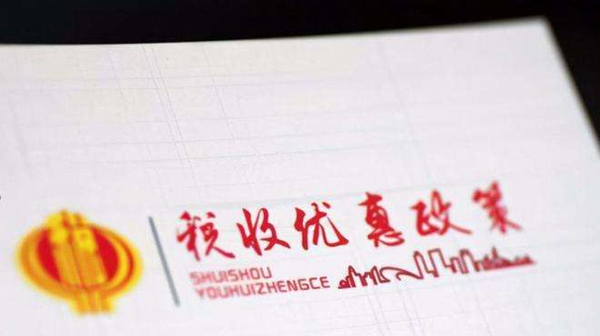 税收优惠政策
SHUISHOU
YOUHUIZHENGCE